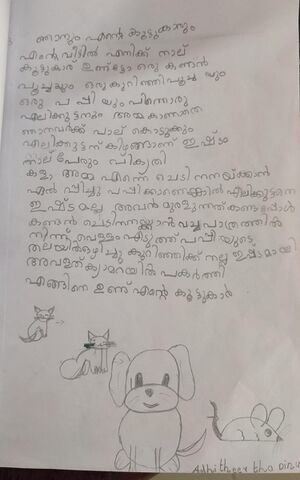 ഞാനും എന്റെ കൂട്ടുകാരും
എന്റെ വീട്ടിൽ എനിക്ക് നാല്
കൂട്ടുകാര് ഉണ്ട്ട്ടോ ഒരു കണ്ടൻ
പൂച്ചയും ഒരു കുറിഞ്ഞിപൂച്ച യും
ഒരു പ പ്പി യും പിന്നൊരു
എലിക്കുട്ടനും അമ്മ കാണാതെ
ഞാനവർക്ക് പാല് കൊടുക്കും
എലിക്കുട്ടന് കിഴങ്ങാണ് ഇഷ്ടം
നാല് പേരും വികൃതി
കളാ, അമ്മ എന്നെ ചെടി നനയ്ക്കാൻ
ഏൽ പ്പിച്ചു പപ്പിക്കാണെങ്കിൽ എലിക്കുട്ടനെ
ഇഷ്ടമല്ല അവൻ മുരളുന്നത് കണ്ടപ്പോൾ
കണ്ടൻ ചെടിനനയ്ക്കാൻ വച്ച പാത്രത്തിൽ
നിന്ന് വെള്ളം എടുത്ത് പപ്പിയുടെ
തലയിൽ ഒഴിച്ചു കുറിഞ്ഞിക്ക് നല്ല ഇഷ്ടമായി
അവളത് ക്യാമറയിൽ പകർത്തി
എങ്ങിനെ ഉണ്ട് എന്റെ കൂട്ടുകാർ